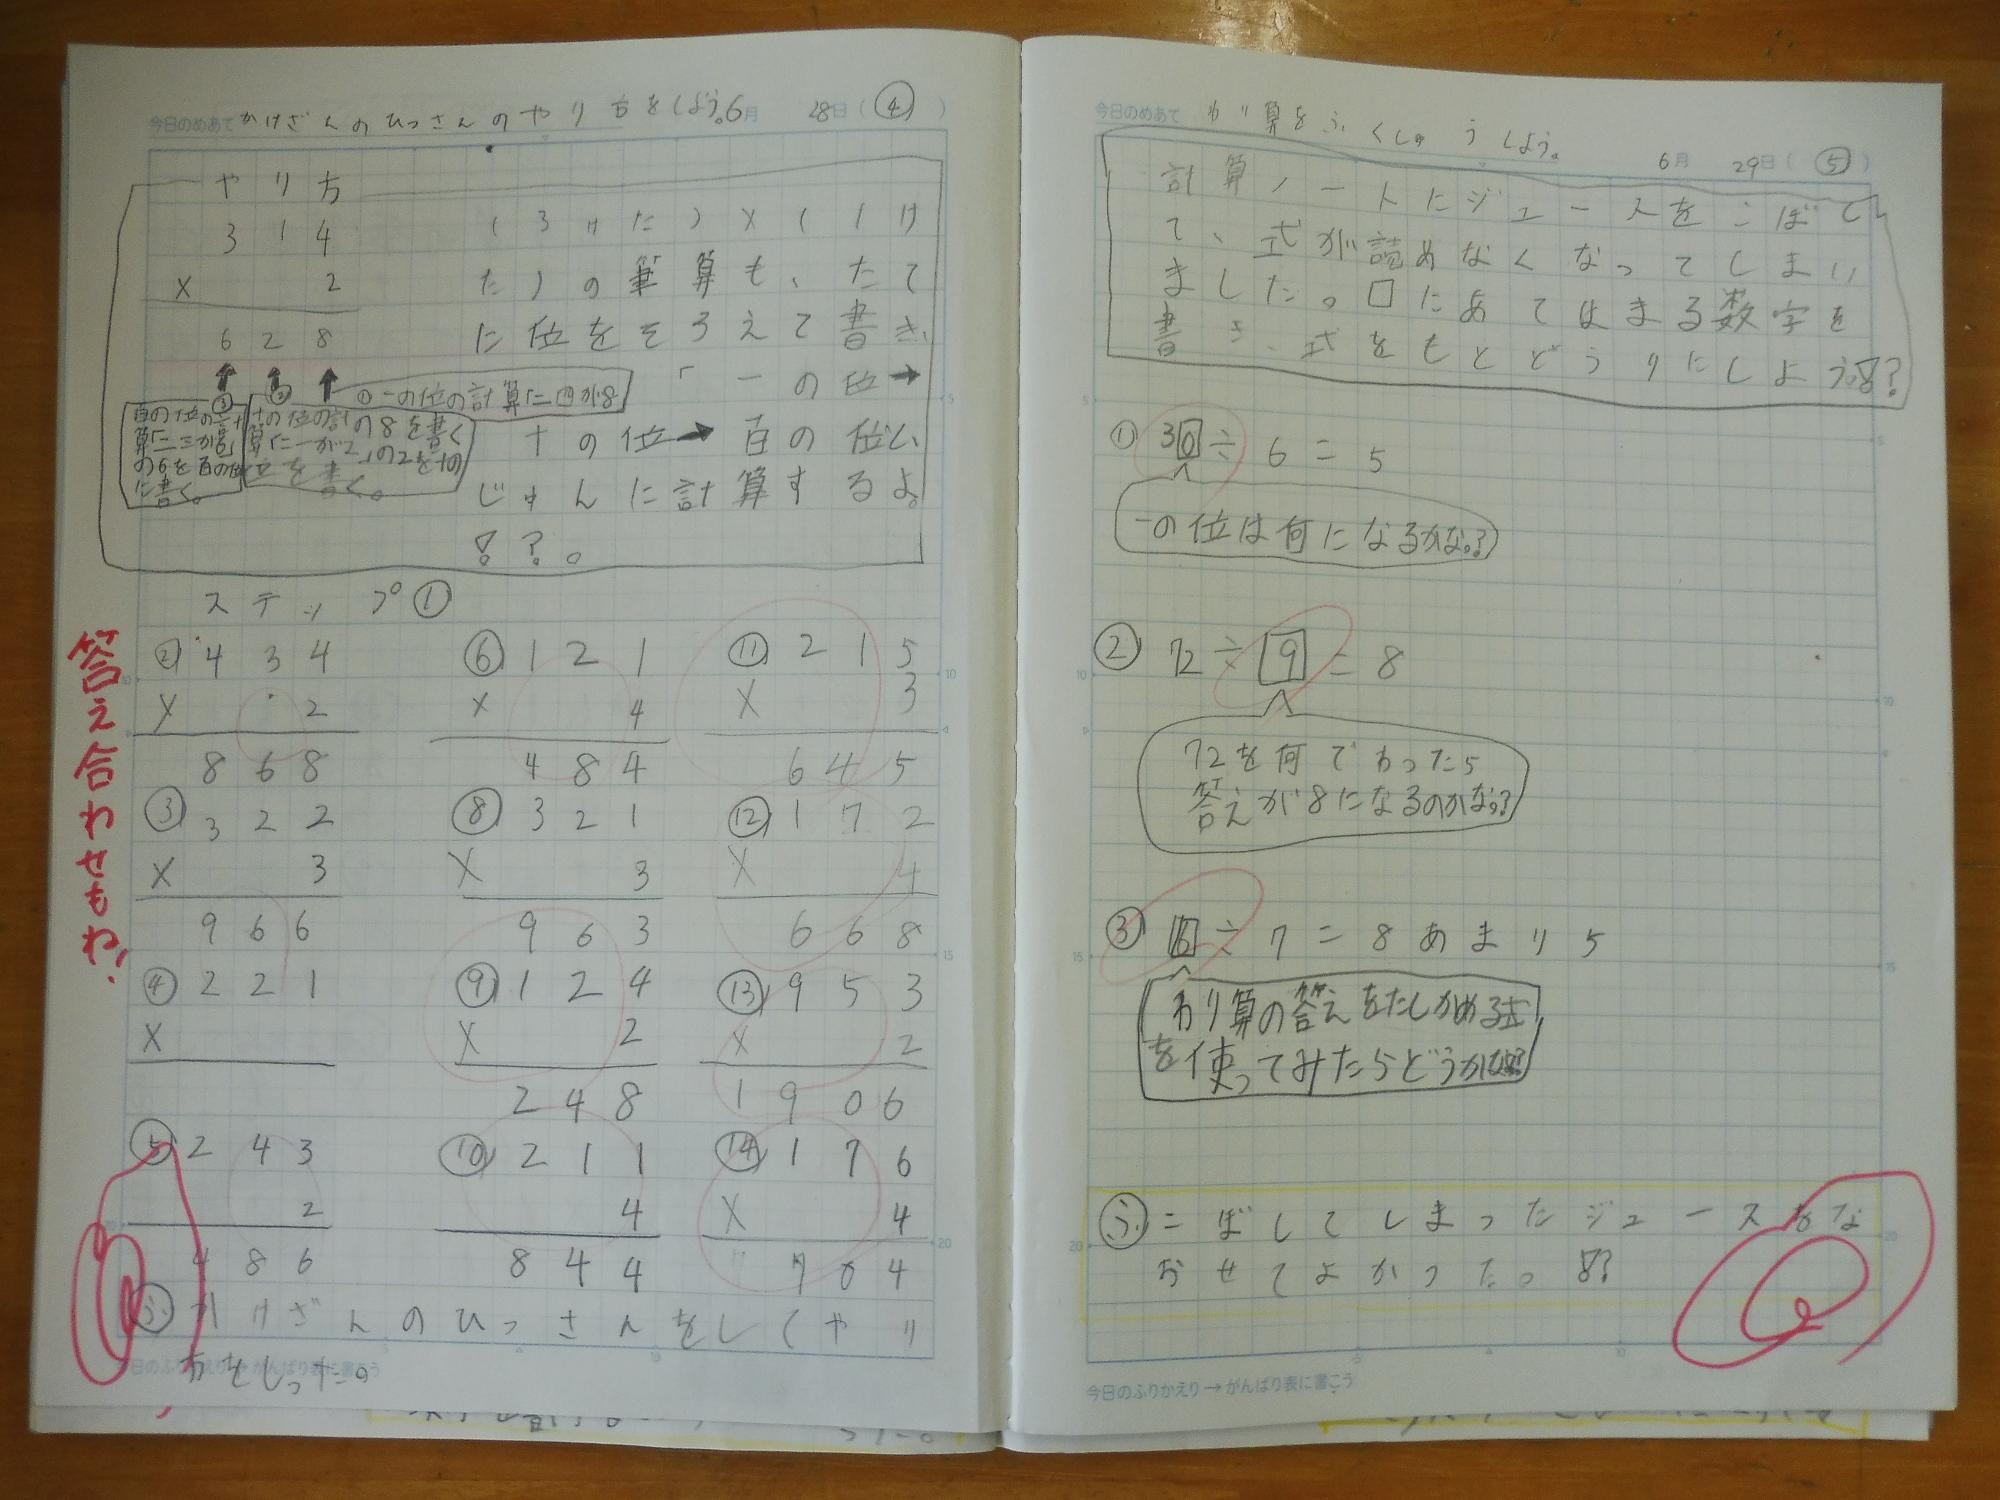 今日のめあて かけざんのひっさんのやり方をしよう。6月 28日(④)
やり方
314
× 2
628
(3けた)×(1け
た)の筆算も、たて
に位をそろえて書き、
「一の位→
十の位→百の位」
じゅんに計算するよ。
!?。
①一の位の計算 二四が8
の8を書く
②十の位の計
算 二一が2
の2を十の
位を書く。
③百の位の計
算 二三が6
の6を百の位
に書く。
ステップ①
② 434
× 2
868
③ 322
× 3
966
④ 221
×
⑤ 243
2
486
⑥ 121
× 4
484
⑧ 321
× 3
963
⑨ 124
× 2
248
⑩ 211
4
844
⑪ 215
× 3
645
⑫ 172
× 4
668
⑬ 953
× 2
1906
⑭ 176
× 4
704
ふ かけざんのひっさんをしてやり
方をしった。
今日のふりかえり→がんばり表に書こう
答え合わせもね!
今日のめあて わり算をふくしゅうしよう。
6月 29日(⑤)
計算ノートにジュースをこぼし
て、式が読めなくなってしまい
ました。□にあてはまる数字を
書き、式をもとどうりにしよう!?
① 30÷6=5
一の位は何になるかな。?
② 72÷9=8
72を何でわったら
答えが8になるのかな。?
③ ÷7=8あまり5
わり算の答えをたしかめる式
を使ってみたらどうかな
ふ こぼしてしまったジュースをな
おせてよかった。!?
今日のふりかえり→がんばり表に書こう